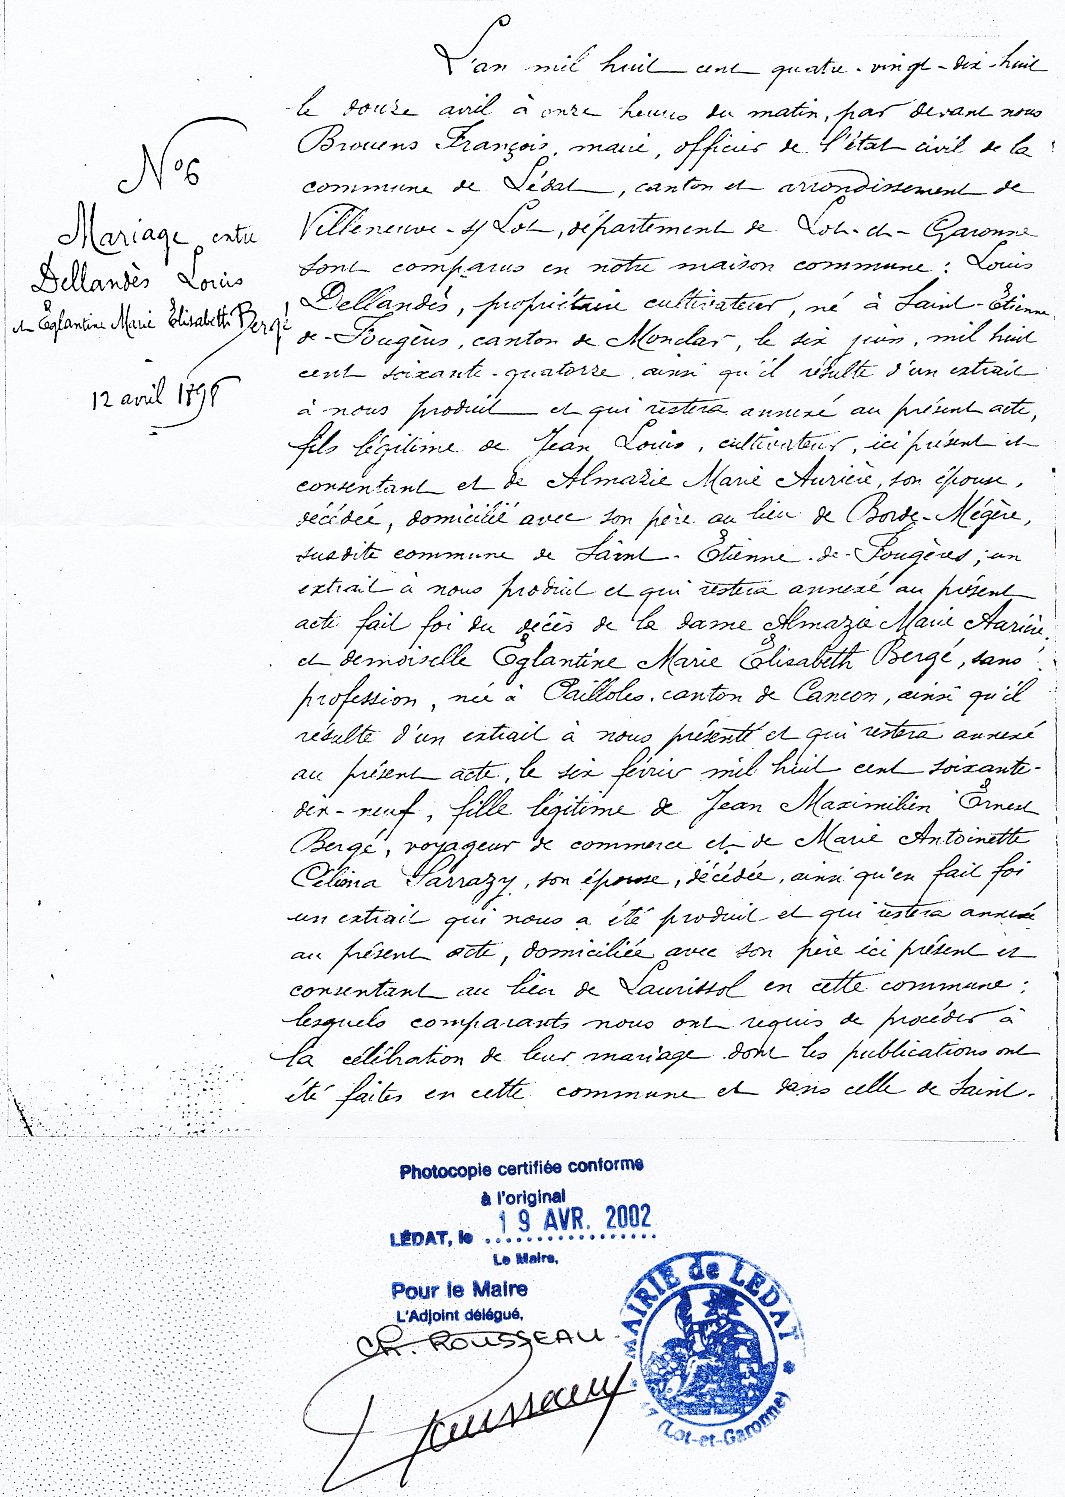 N° 6
Mariage entre
Dellandès Louis
et Églantine Marie Élisabeth Bergé
12 avril 1898
L'an mil huit cent quatre-vingt-dix-huit
le douze avril à onze heures du matin, par devant nous
Brouens François, maire, officier de l'état civil de la
commune de Lédat, canton et arrondissement de
Villeneuve-s/Lot, département de Lot-et-Garonne
sont comparus en notre maison commune : Louis
Dellandès, propriétaire cultivateur, né à Saint-Étienne
de-Fougères, canton de Monclar, le six juin, mil huit
cent soixante-quatorze, ainsi qu'il résulte d'un extrait
à nous produit et qui restera annexé au présent acte,
fils légitime de Jean Louis, cultivateur, ici présent et
consentant et de Almazie Marie Aurière, son épouse,
décédée, domicilié avec son père au lieu de Borde-Mégère,
susdite commune de Saint-Étienne-de-Fougères ; un
extrait à nous produit et qui restera annexé au présent
acte fait foi du décès de la dame Almazie Marie Aurière,
et demoiselle Églantine Marie Élisabeth Bergé, sans
profession, née à Pailloles, canton de Cancon, ainsi qu'il
résulte d'un extrait à nous présenté et qui restera annexé
au présent acte, le six février mil huit cent soixante-
dix-neuf, fille légitime de Jean Maximilien Ernest
Bergé, voyageur de commerce et de Marie Antoinette
Célima Sarrazy, son épouse, décédée, ainsi qu'en fait foi
un extrait qui nous a été produit et qui restera annexé
au présent acte, domiciliée avec son père ici présent et
consentant au lieu de Laurissol en cette commune ;
lesquels comparants nous ont requis de procéder à
la célébration de leur mariage dont les publications ont
été faites en cette commune et dans celle de Saint-
Photocopie certifiée conforme
à l'original
LÉDAT, le 19 AVR. 2002
Le Maire,
Pour le Maire
L'Adjoint délégué,
CH. ROUSSEAU
Rousseau
MAIRIE de LEDAT
47 (Lot-et-Garonne)